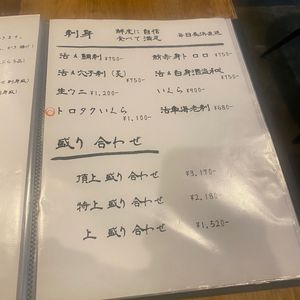 刺身 鮮度に自信 食べて満足 毎日長浜直送
活〆鯛刺 ¥750- 鮪赤身トロロ ¥750-
活〆穴子刺(炙) ¥750- 活〆白身酒盗和え ¥750-
生ウニ ¥1,200- いくら ¥900-
トロタクいくら ¥1,100- 活車海老刺 ¥680-
盛り合わせ
頂上盛り合わせ ¥3,170-
特上盛り合わせ ¥2,180-
上盛り合わせ ¥1,520-